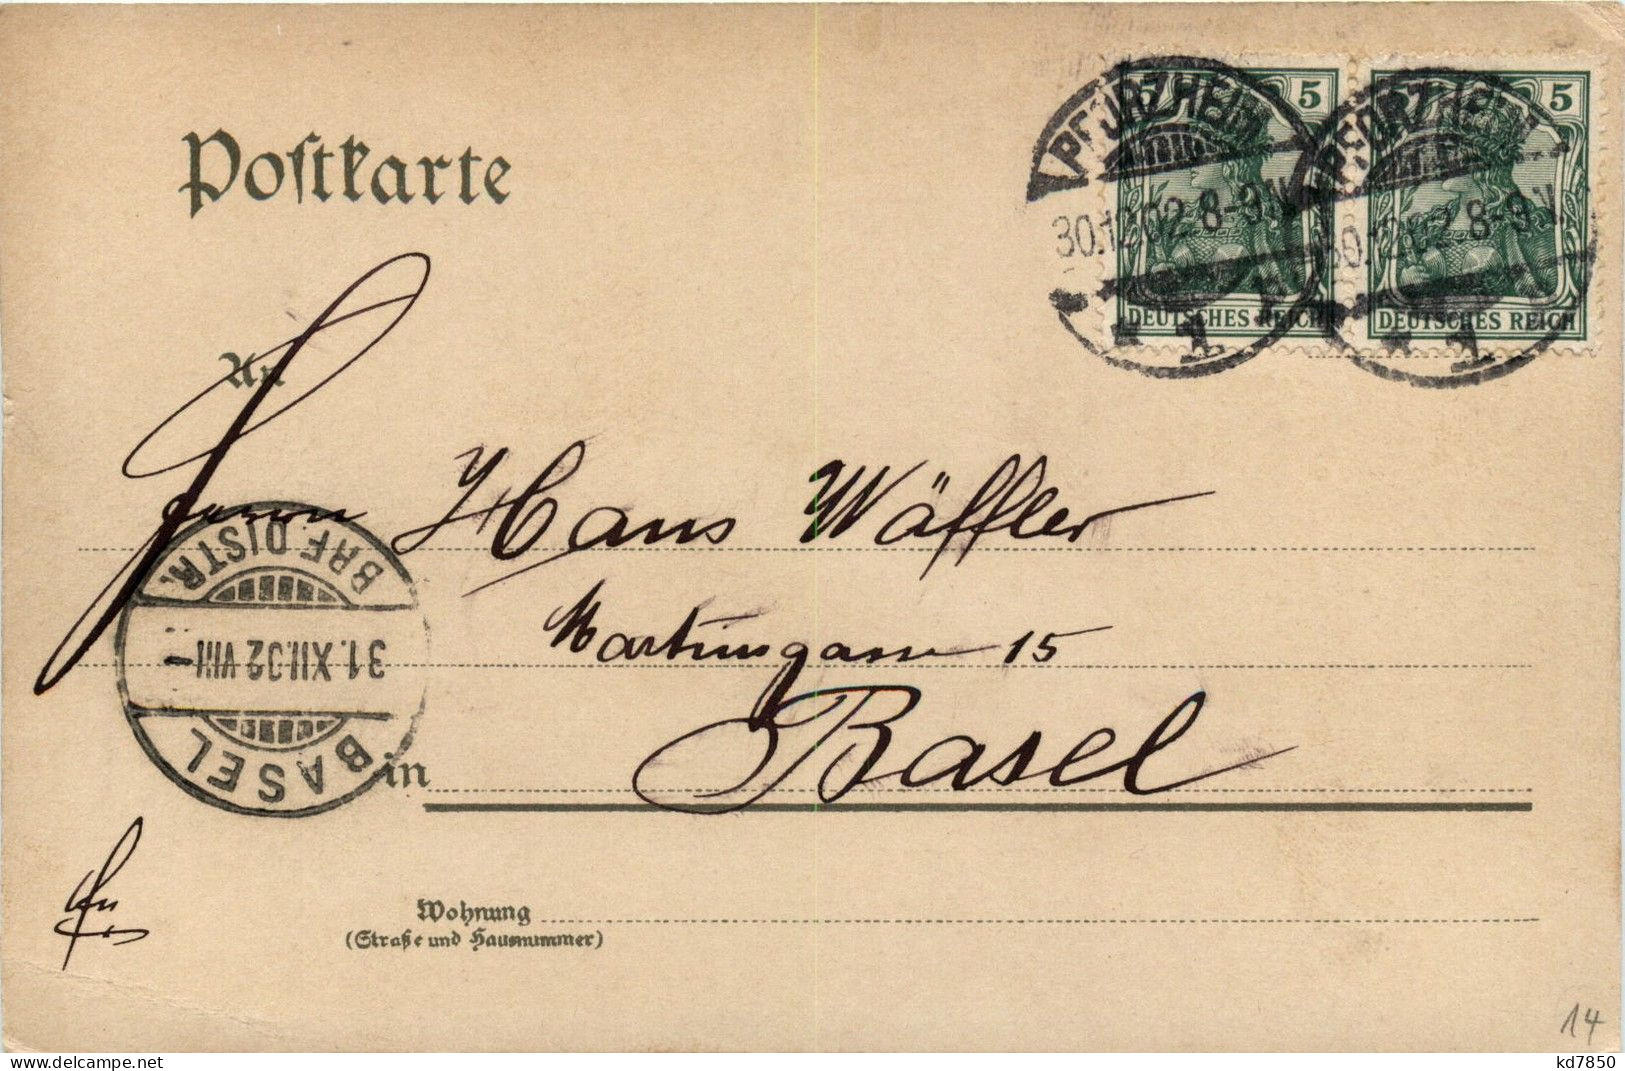 Postkarte
5 5
PFORZHEIM PFORZHEIM
30.12.02.8-9 V. 30.12.02.8-9 V.
DEUTSCHES REICH DEUTSCHES REICH
* 1 * 1
An
Herrn Hans Wäffler
BRF. DISTR.
Martinsgasse 15
31. XII. 02 VIII
BASEL
in Basel
Wohnung
(Straße und Hausnummer)
14
kd7850